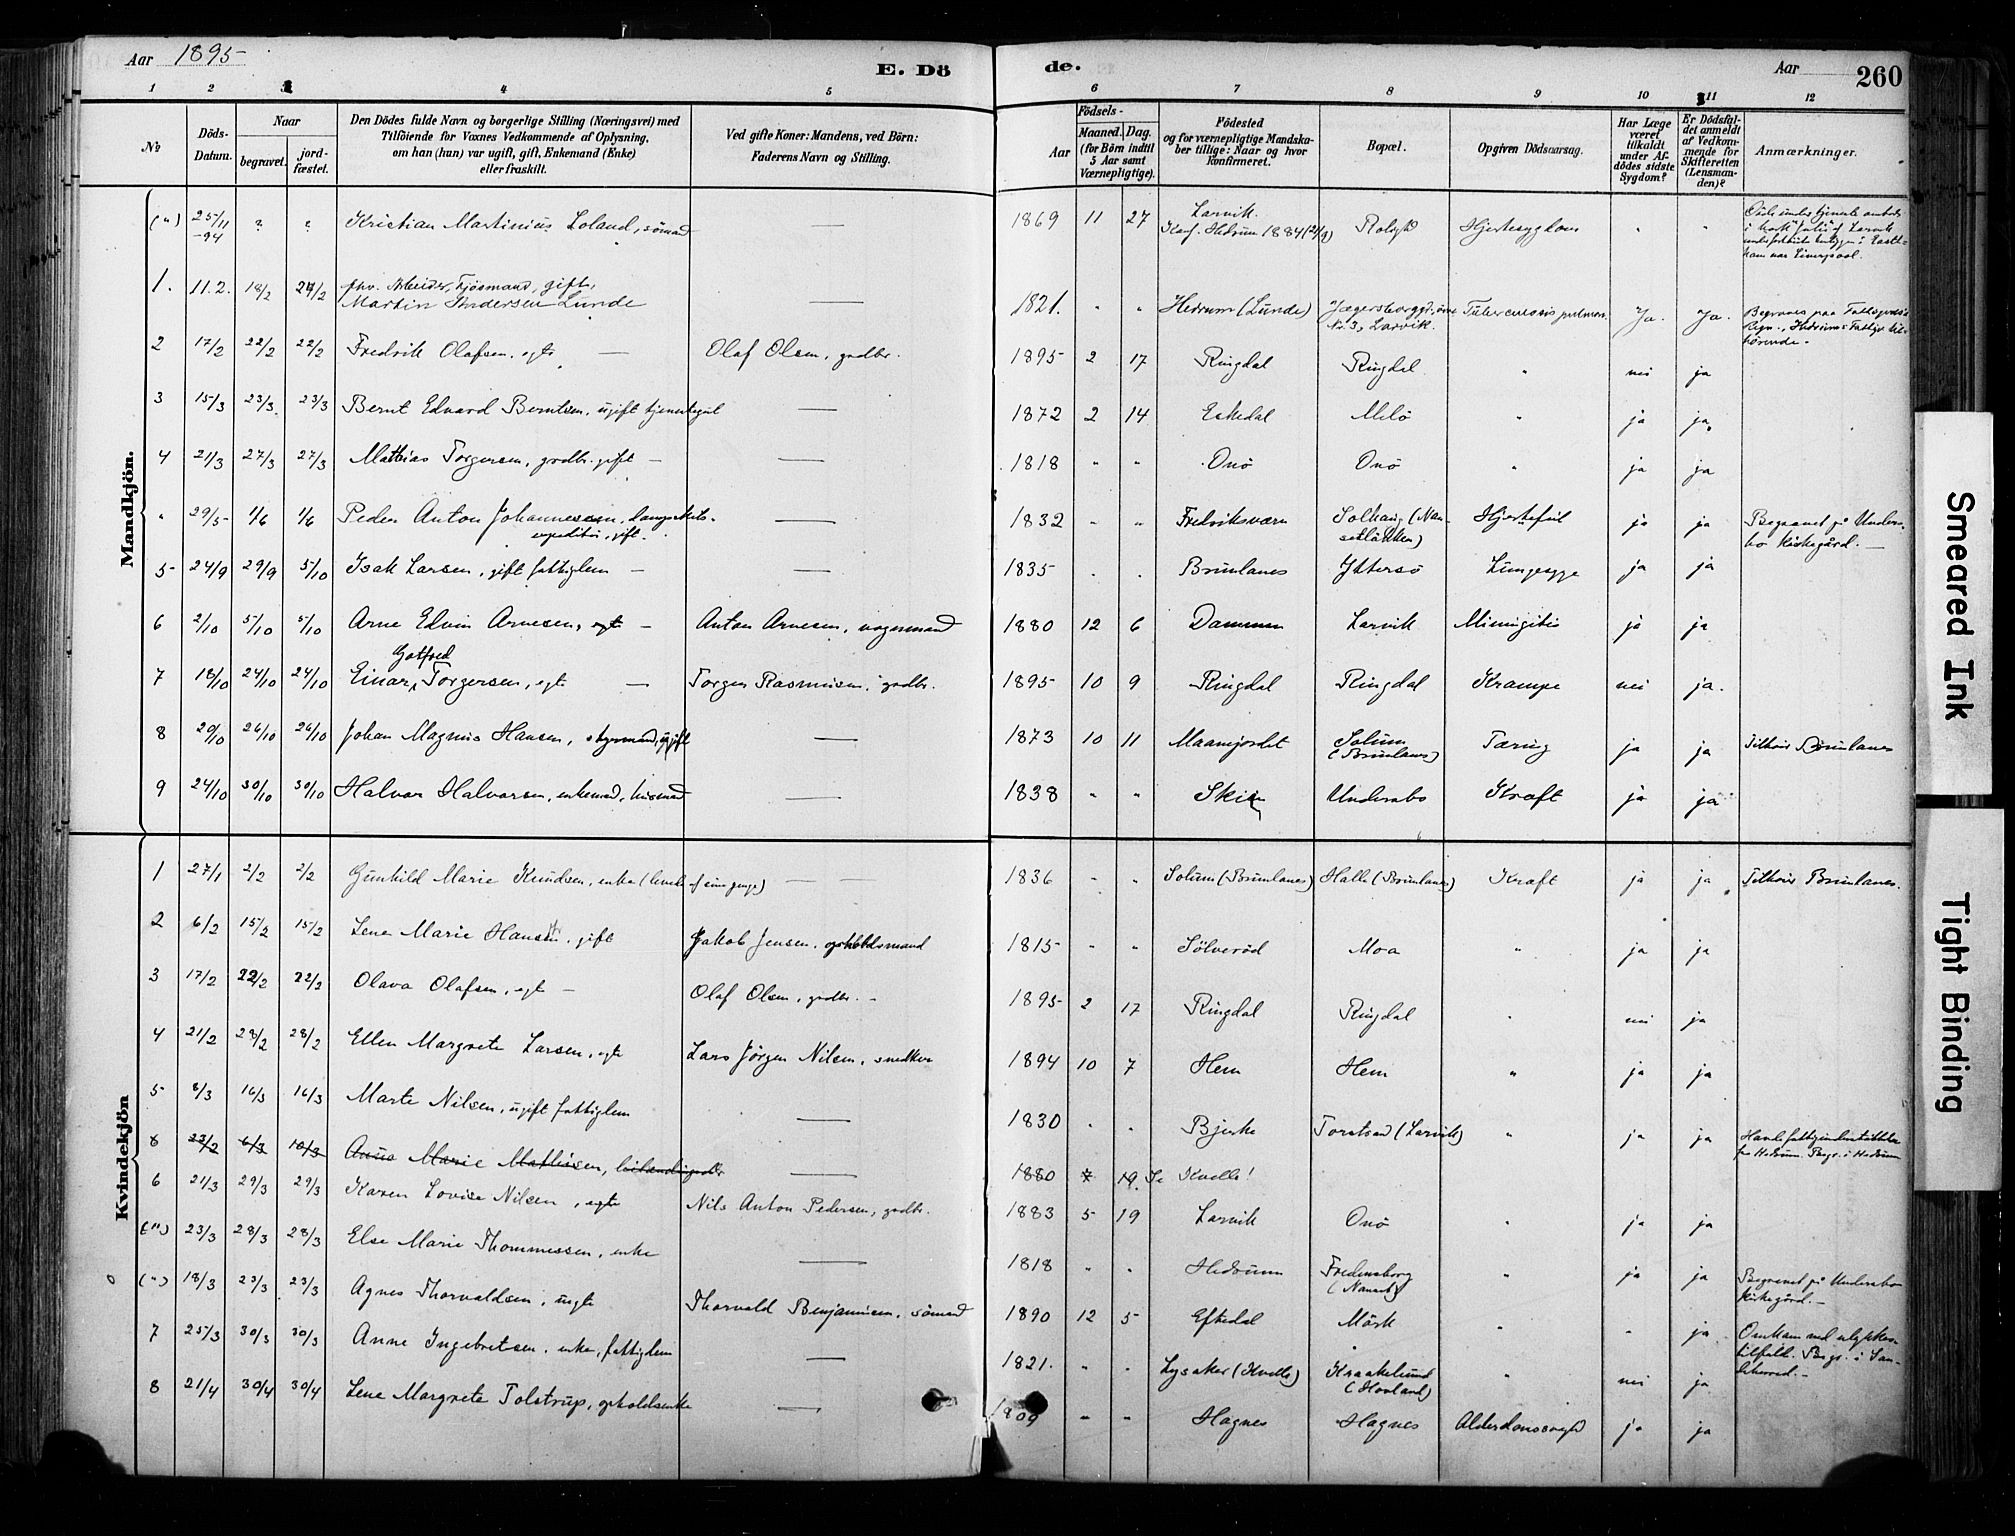 Aar 1895
E. Döde.
Aar 260
1 2 3 4 5 6 7 8 9 10 11 12
No
Döds-Datum.
Naar
begravet.
jordfæstet.
Den Dödes fulde Navn og borgerlige Stilling (Næringsvei) med
Tilföiende for Voxnes Vedkommende af Oplysning,
om han (hun) var ugift, gift, Enkemand (Enke)
eller fraskilt.
Ved gifte Koner: Mandens, ved Börn:
Faderens Navn og Stilling.
Födsels-
Aar
Maaned. Dag.
(for Börn indtil
5 Aar samt
Værnepligtige).
Födested
og for værnepligtige Mandskaber tillige: Naar og hvor
konfirmeret.
Bopæl.
Opgiven Dödsaarsag.
Har Læge
været
tilkaldt
under Afdödes sidste
Sygdom?
Er Dödsfaldet anmeldt
af Vedkommende for
Skifteretten
(Lensmanden)?
Anmærkninger.
Mandkjön.
(") 25/11 -94 ? ? Kristian Martinius Loland, sömand — 1869 11 27 Larvik. Konf. Hedrum 1884 Hjertesygdom " "
1. 11.2. 18/2 24/2 fhv. Arbeider, Fjösmand, gift, Martin Andersen Lunde — 1821. " " Hedrum (Lunde) No. 3, Larvik. Tuberculosis pulmon. Ja. Ja.
2 17/2 22/2 22/2 Fredrik Olafsen, egte — Olaf Olsen, grdbr. 1895 2 17 Ringdal Ringdal " nei ja
3 15/3 23/3 23/3 Bernt Edvard Berntsen, ugift tjenestegut — 1872 2 14 Eskedal Melö " ja ja
4 21/3 27/3 27/3 Mathias Torgersen, grdbr. gift — 1818 " " Onö Onö " ja ja
" 29/5 1/6 1/6 Peder Anton Johannessen, expeditör, gift. — 1832 " " Fredriksværn Solhaug (Nansetlökken) Hjertefeil ja ja Begravet på Undersbo kirkegård. —
5 24/9 29/9 5/10 Isak Larsen, gift fattiglem — 1835 " " Brunlanes Yttersö Lungesyge ja ja
6 2/10 5/10 5/10 Arne Edvin Arnesen, egte — Anton Arnesen, vognmand 1880 12 6 Dammen Larvik ja ja
7 18/10 24/10 24/10 Einar Gotfred Torgersen, egte — Torger Rasmusen, grdbr. 1895 10 9 Ringdal Ringdal Krampe nei ja.
8 20/10 26/10 26/10 Johan Magnus Hansen, styrmand, ugift — 1873 10 11 Maanejordet Solum (Brunlanes) Tæring ja ja Tilhörer Brunlanes
9 24/10 30/10 30/10 Halvor Halvorsen, enkemand, husmand — 1838 " " Skien Undersbo Kræft ja ja
Kvindekjön
1 27/1 2/2 2/2 Gunhild Marie Knudsen, enke (levede af sine penge) — 1836 " " Solum (Brunlanes) Halle (Brunlanes) Kræft ja ja Tilhörer Brunlanes.
2 6/2 15/2 15/2 Lene Marie Hansen, gift Jakob Jensen, opholdsmand 1815 " " Sölveröd Moa " ja ja
3 17/2 22/2 22/2 Olava Olafsen, egte — Olaf Olsen, grdbr. 1895 2 17 Ringdal Ringdal " nei ja
4 21/2 28/2 28/2 Ellen Margrete Larsen, egte Lars Jörgen Nilsen, snedker 1894 10 7 Hem Hem " ja ja
5 8/3 16/3 16/3 Marte Nilsen, ugift fattiglem — 1830 " " Bjerke Torstrand (Larvik) " ja ja
6 23/2 6/3 10/3 Anna Marie Mathisen, — 1880 19. Se Kvelle!
6 21/3 29/3 29/3 Karen Lovise Nilsen, egte Nils Anton Pedersen, grdbr. 1883 5 19 Larvik Onö " ja ja
(") 23/3 28/3 28/3 Else Marie Thommessen, enke — 1818 " " Hedrum Fredensborg (Nanset) " ja ja Begravet på Undersbo kirkegård. —
(") 18/3 23/3 23/3 Agnes Thorvaldsen, uegte Thorvald Benjaminsen, sömand 1890 12 5 Eftedal Mörk " " ja Omkom ved ulykkestilfælde. Begr. i Sandeherred. —
7 25/3 30/3 30/3 Anne Ingebretsen, enke, fattiglem — 1821. " " Lysaker (Kvelle) Kraakelund (Hovland) " nei ja
8 21/4 30/4 30/4 Lene Margrete Tolstrup, opholdsenke — 1809 " " Hagnes Hagnes Alderdomssvaghed ja ja
Smeared Ink
Tight Binding